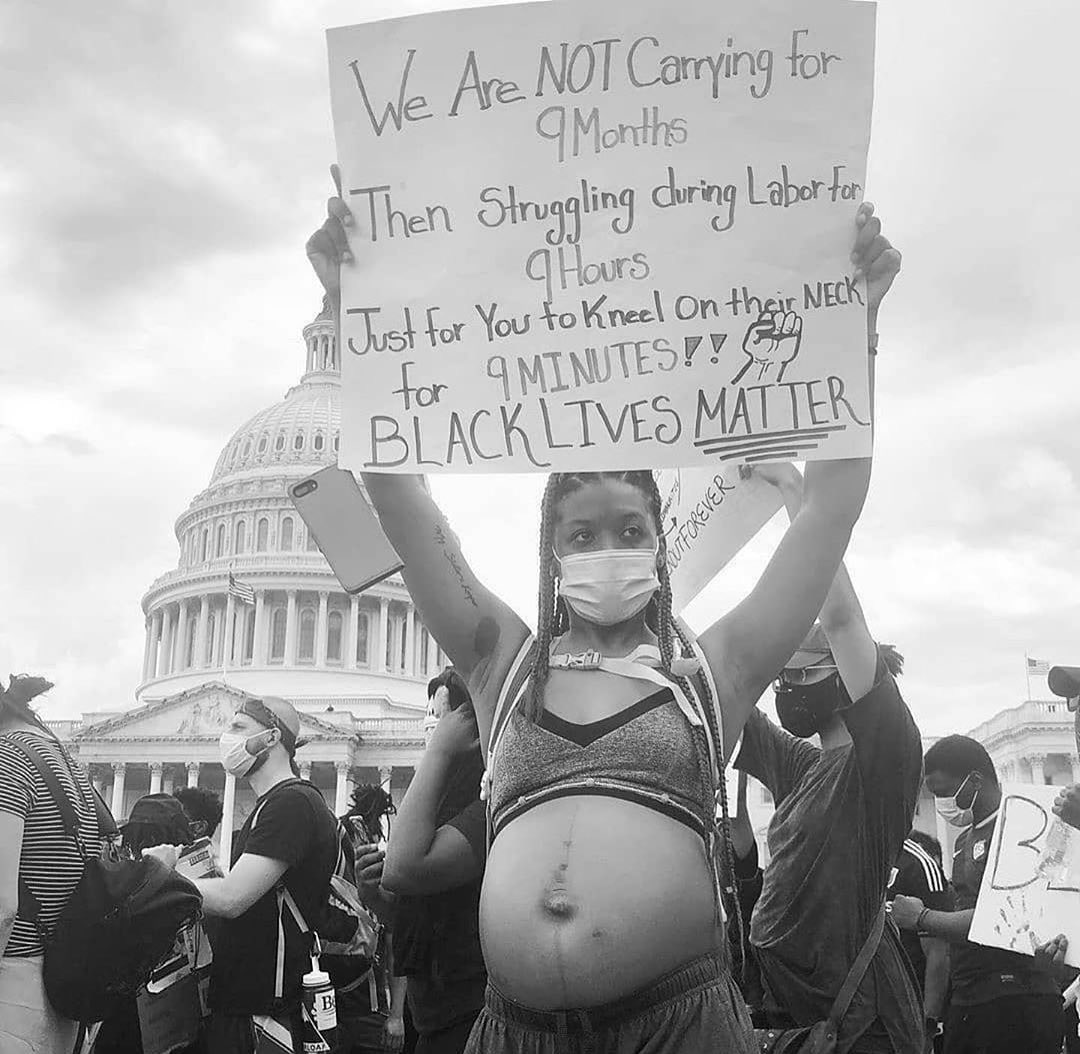 We Are NOT Carrying for
9 Months
Then Struggling during Labor for
9 Hours
Just for You to Kneel On their NECK
for 9 MINUTES!!
BLACK LIVES MATTER
OUTFOREVER